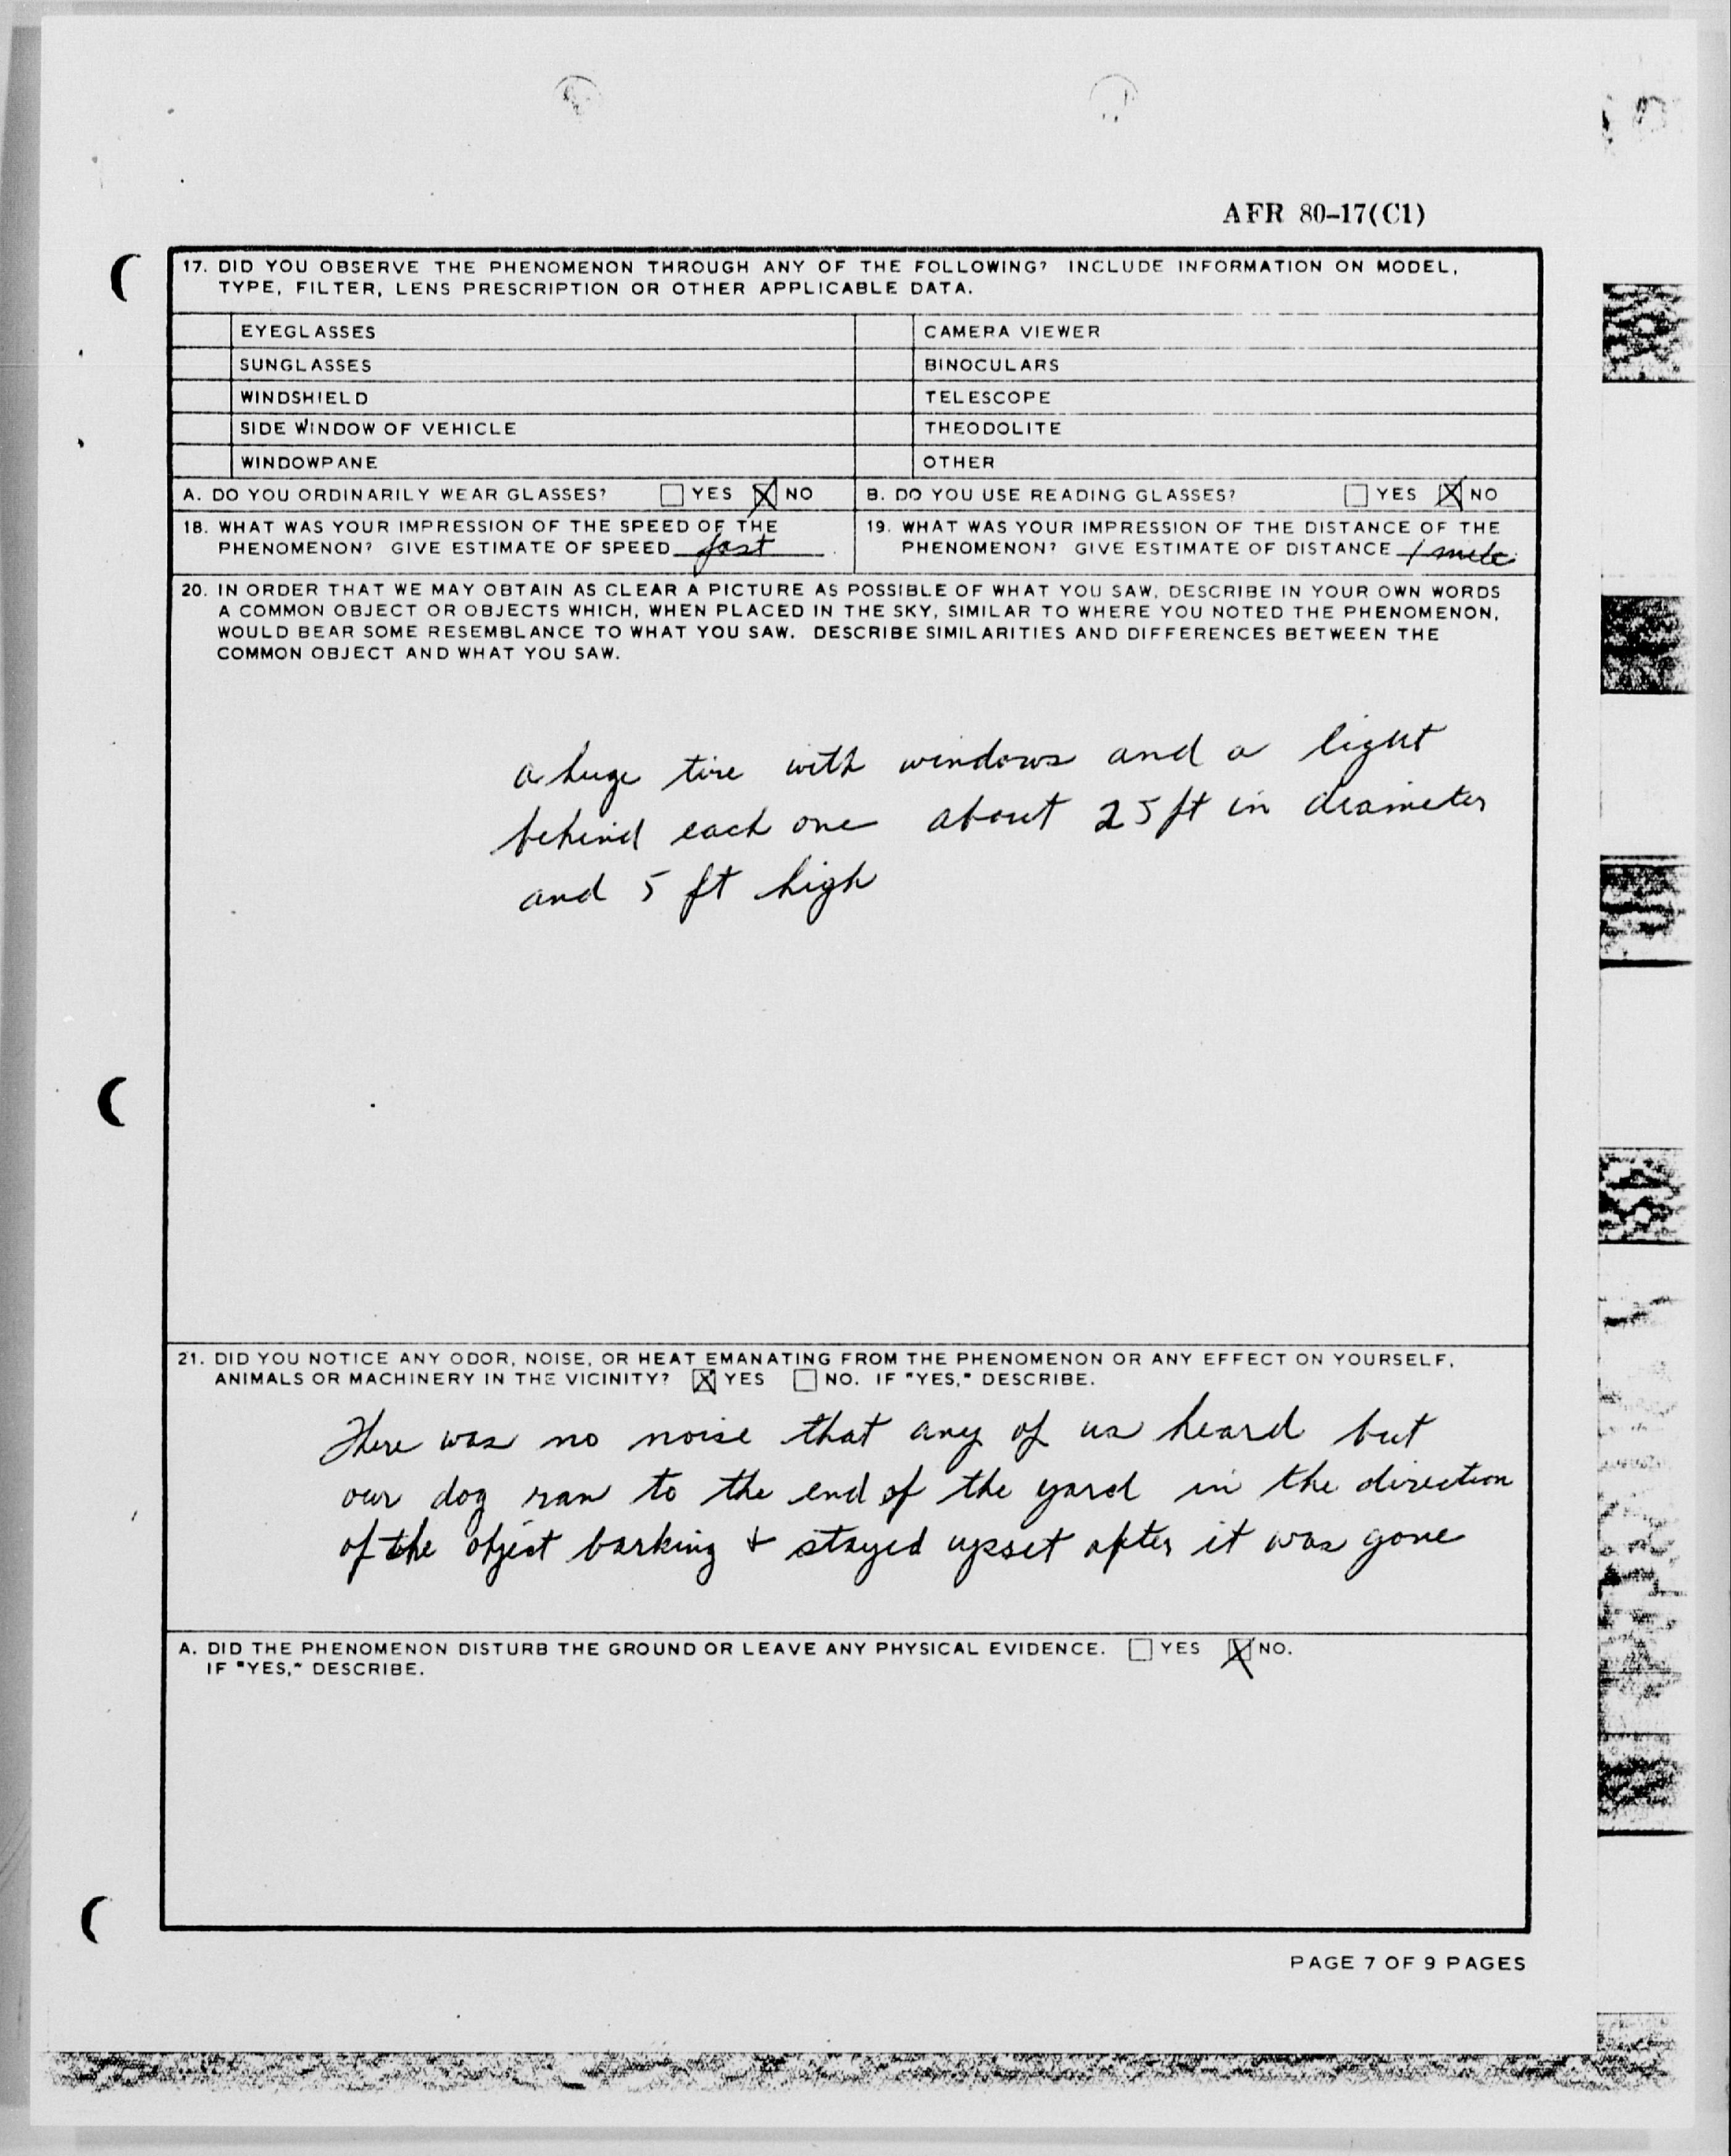 AFR 80-17(C1)
17. DID YOU OBSERVE THE PHENOMENON THROUGH ANY OF THE FOLLOWING? INCLUDE INFORMATION ON MODEL,
TYPE, FILTER, LENS PRESCRIPTION OR OTHER APPLICABLE DATA.
EYEGLASSES CAMERA VIEWER
SUNGLASSES BINOCULARS
WINDSHIELD TELESCOPE
SIDE WINDOW OF VEHICLE THEODOLITE
WINDOWPANE OTHER
A. DO YOU ORDINARILY WEAR GLASSES? ☐ YES ☒ NO B. DO YOU USE READING GLASSES? ☐ YES ☒ NO
18. WHAT WAS YOUR IMPRESSION OF THE SPEED OF THE
PHENOMENON? GIVE ESTIMATE OF SPEED fast
19. WHAT WAS YOUR IMPRESSION OF THE DISTANCE OF THE
PHENOMENON? GIVE ESTIMATE OF DISTANCE 1 mile
20. IN ORDER THAT WE MAY OBTAIN AS CLEAR A PICTURE AS POSSIBLE OF WHAT YOU SAW, DESCRIBE IN YOUR OWN WORDS
A COMMON OBJECT OR OBJECTS WHICH, WHEN PLACED IN THE SKY, SIMILAR TO WHERE YOU NOTED THE PHENOMENON,
WOULD BEAR SOME RESEMBLANCE TO WHAT YOU SAW. DESCRIBE SIMILARITIES AND DIFFERENCES BETWEEN THE
COMMON OBJECT AND WHAT YOU SAW.
a huge tire with windows and a light
behind each one about 25 ft in diameter
and 5 ft high
21. DID YOU NOTICE ANY ODOR, NOISE, OR HEAT EMANATING FROM THE PHENOMENON OR ANY EFFECT ON YOURSELF,
ANIMALS OR MACHINERY IN THE VICINITY? ☒ YES ☐ NO. IF "YES," DESCRIBE.
There was no noise that any of us heard but
our dog ran to the end of the yard in the direction
of the object barking + stayed upset after it was gone
A. DID THE PHENOMENON DISTURB THE GROUND OR LEAVE ANY PHYSICAL EVIDENCE. ☐ YES ☒ NO.
IF "YES," DESCRIBE.
PAGE 7 OF 9 PAGES